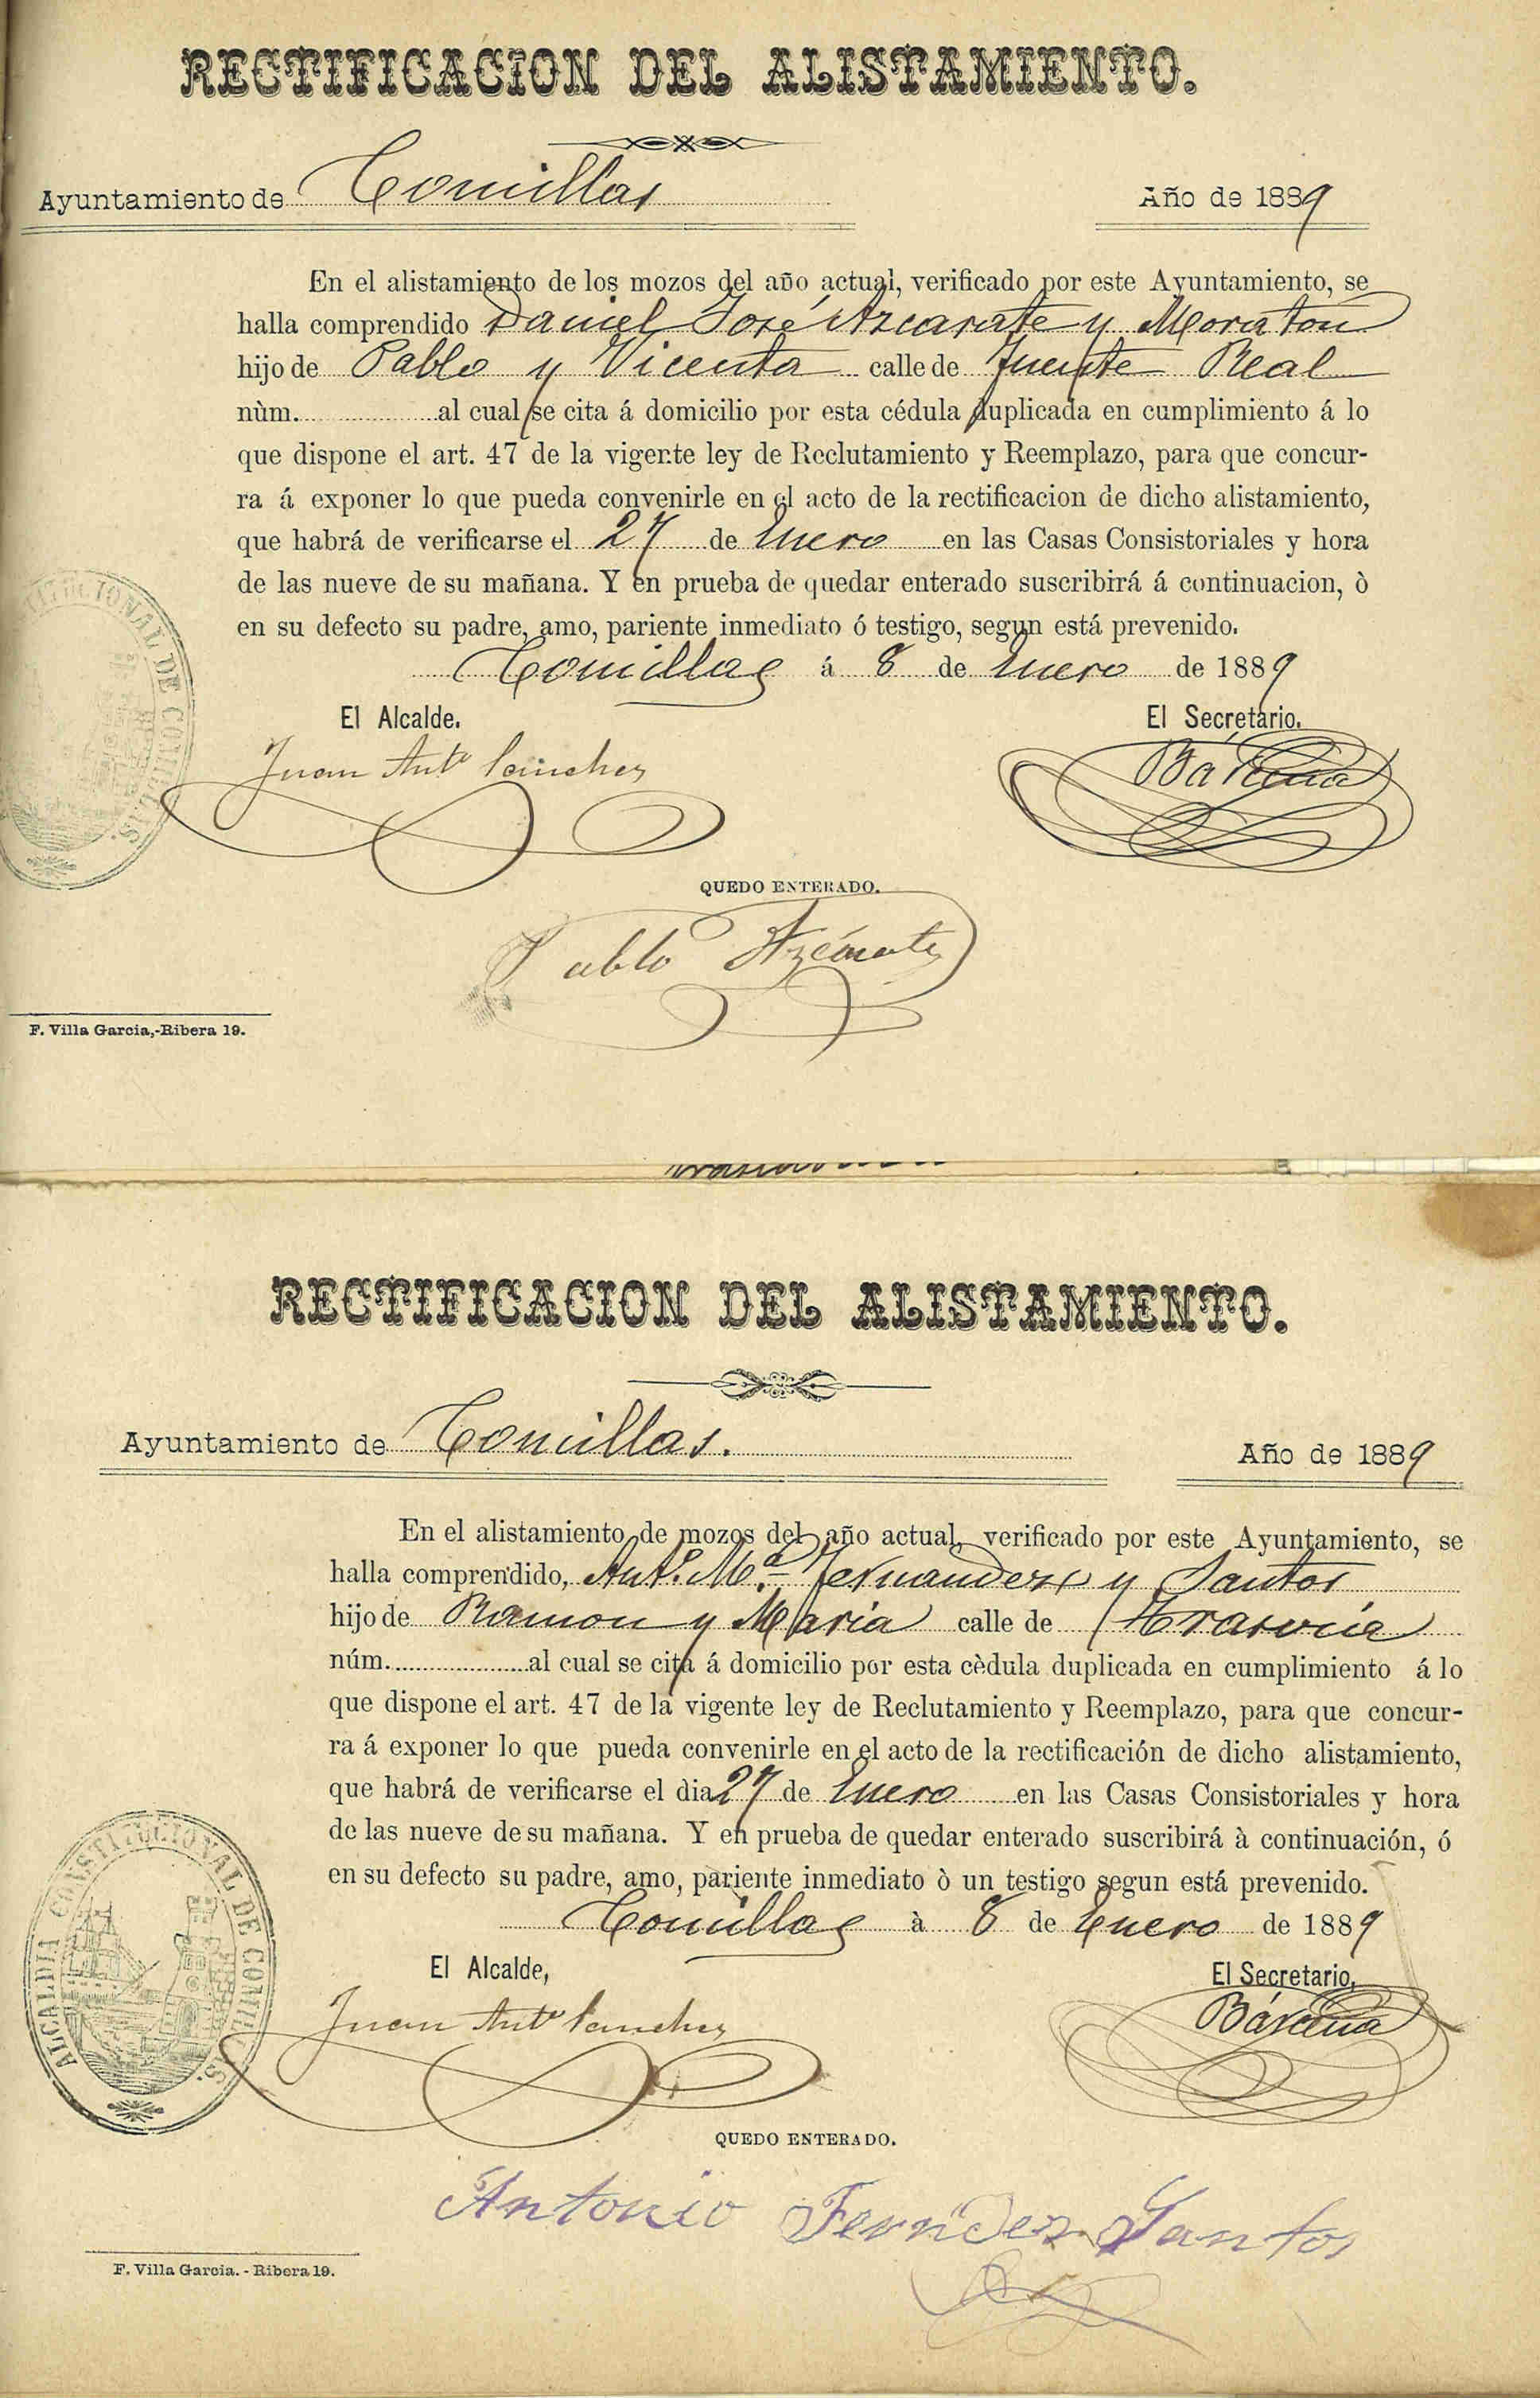 RECTIFICACION DEL ALISTAMIENTO.
Ayuntamiento de Comillas Año de 1889
En el alistamiento de los mozos del año actual, verificado por este Ayuntamiento, se
halla comprendido Daniel José Azcarate y Moraton
hijo de Pablo y Vicenta calle de Fuente Real
nùm. al cual se cita á domicilio por esta cédula duplicada en cumplimiento á lo
que dispone el art. 47 de la vigente ley de Reclutamiento y Reemplazo, para que concur-
ra á exponer lo que pueda convenirle en el acto de la rectificacion de dicho alistamiento,
que habrá de verificarse el 27 de Enero en las Casas Consistoriales y hora
de las nueve de su mañana. Y en prueba de quedar enterado suscribirá á continuacion, ò
en su defecto su padre, amo, pariente inmediato ó testigo, segun está prevenido.
Comillas á 8 de Enero de 1889
El Alcalde. El Secretario.
Juan Antº Sanchez Bárcena
QUEDO ENTERADO.
Pablo Azcárate
F. Villa Garcia,-Ribera 19.
RECTIFICACION DEL ALISTAMIENTO.
Ayuntamiento de Comillas. Año de 1889
En el alistamiento de mozos del año actual, verificado por este Ayuntamiento, se
halla comprendido, Antº. Mª. Fernandez y Santos
hijo de Ramon y Maria calle de
núm. al cual se cita á domicilio por esta cèdula duplicada en cumplimiento á lo
que dispone el art. 47 de la vigente ley de Reclutamiento y Reemplazo, para que concur-
ra á exponer lo que pueda convenirle en el acto de la rectificación de dicho alistamiento,
que habrá de verificarse el dia 27 de Enero en las Casas Consistoriales y hora
de las nueve de su mañana. Y en prueba de quedar enterado suscribirá à continuación, ó
en su defecto su padre, amo, pariente inmediato ò un testigo segun está prevenido.
Comillas à 8 de Enero de 1889
ALCALDIA CONSTITUCIONAL DE COMILLAS.
El Alcalde, El Secretario,
Juan Antº Sanchez Bárcena
QUEDO ENTERADO.
Antonio Fernãdez Santos
F. Villa Garcia. - Ribera 19.